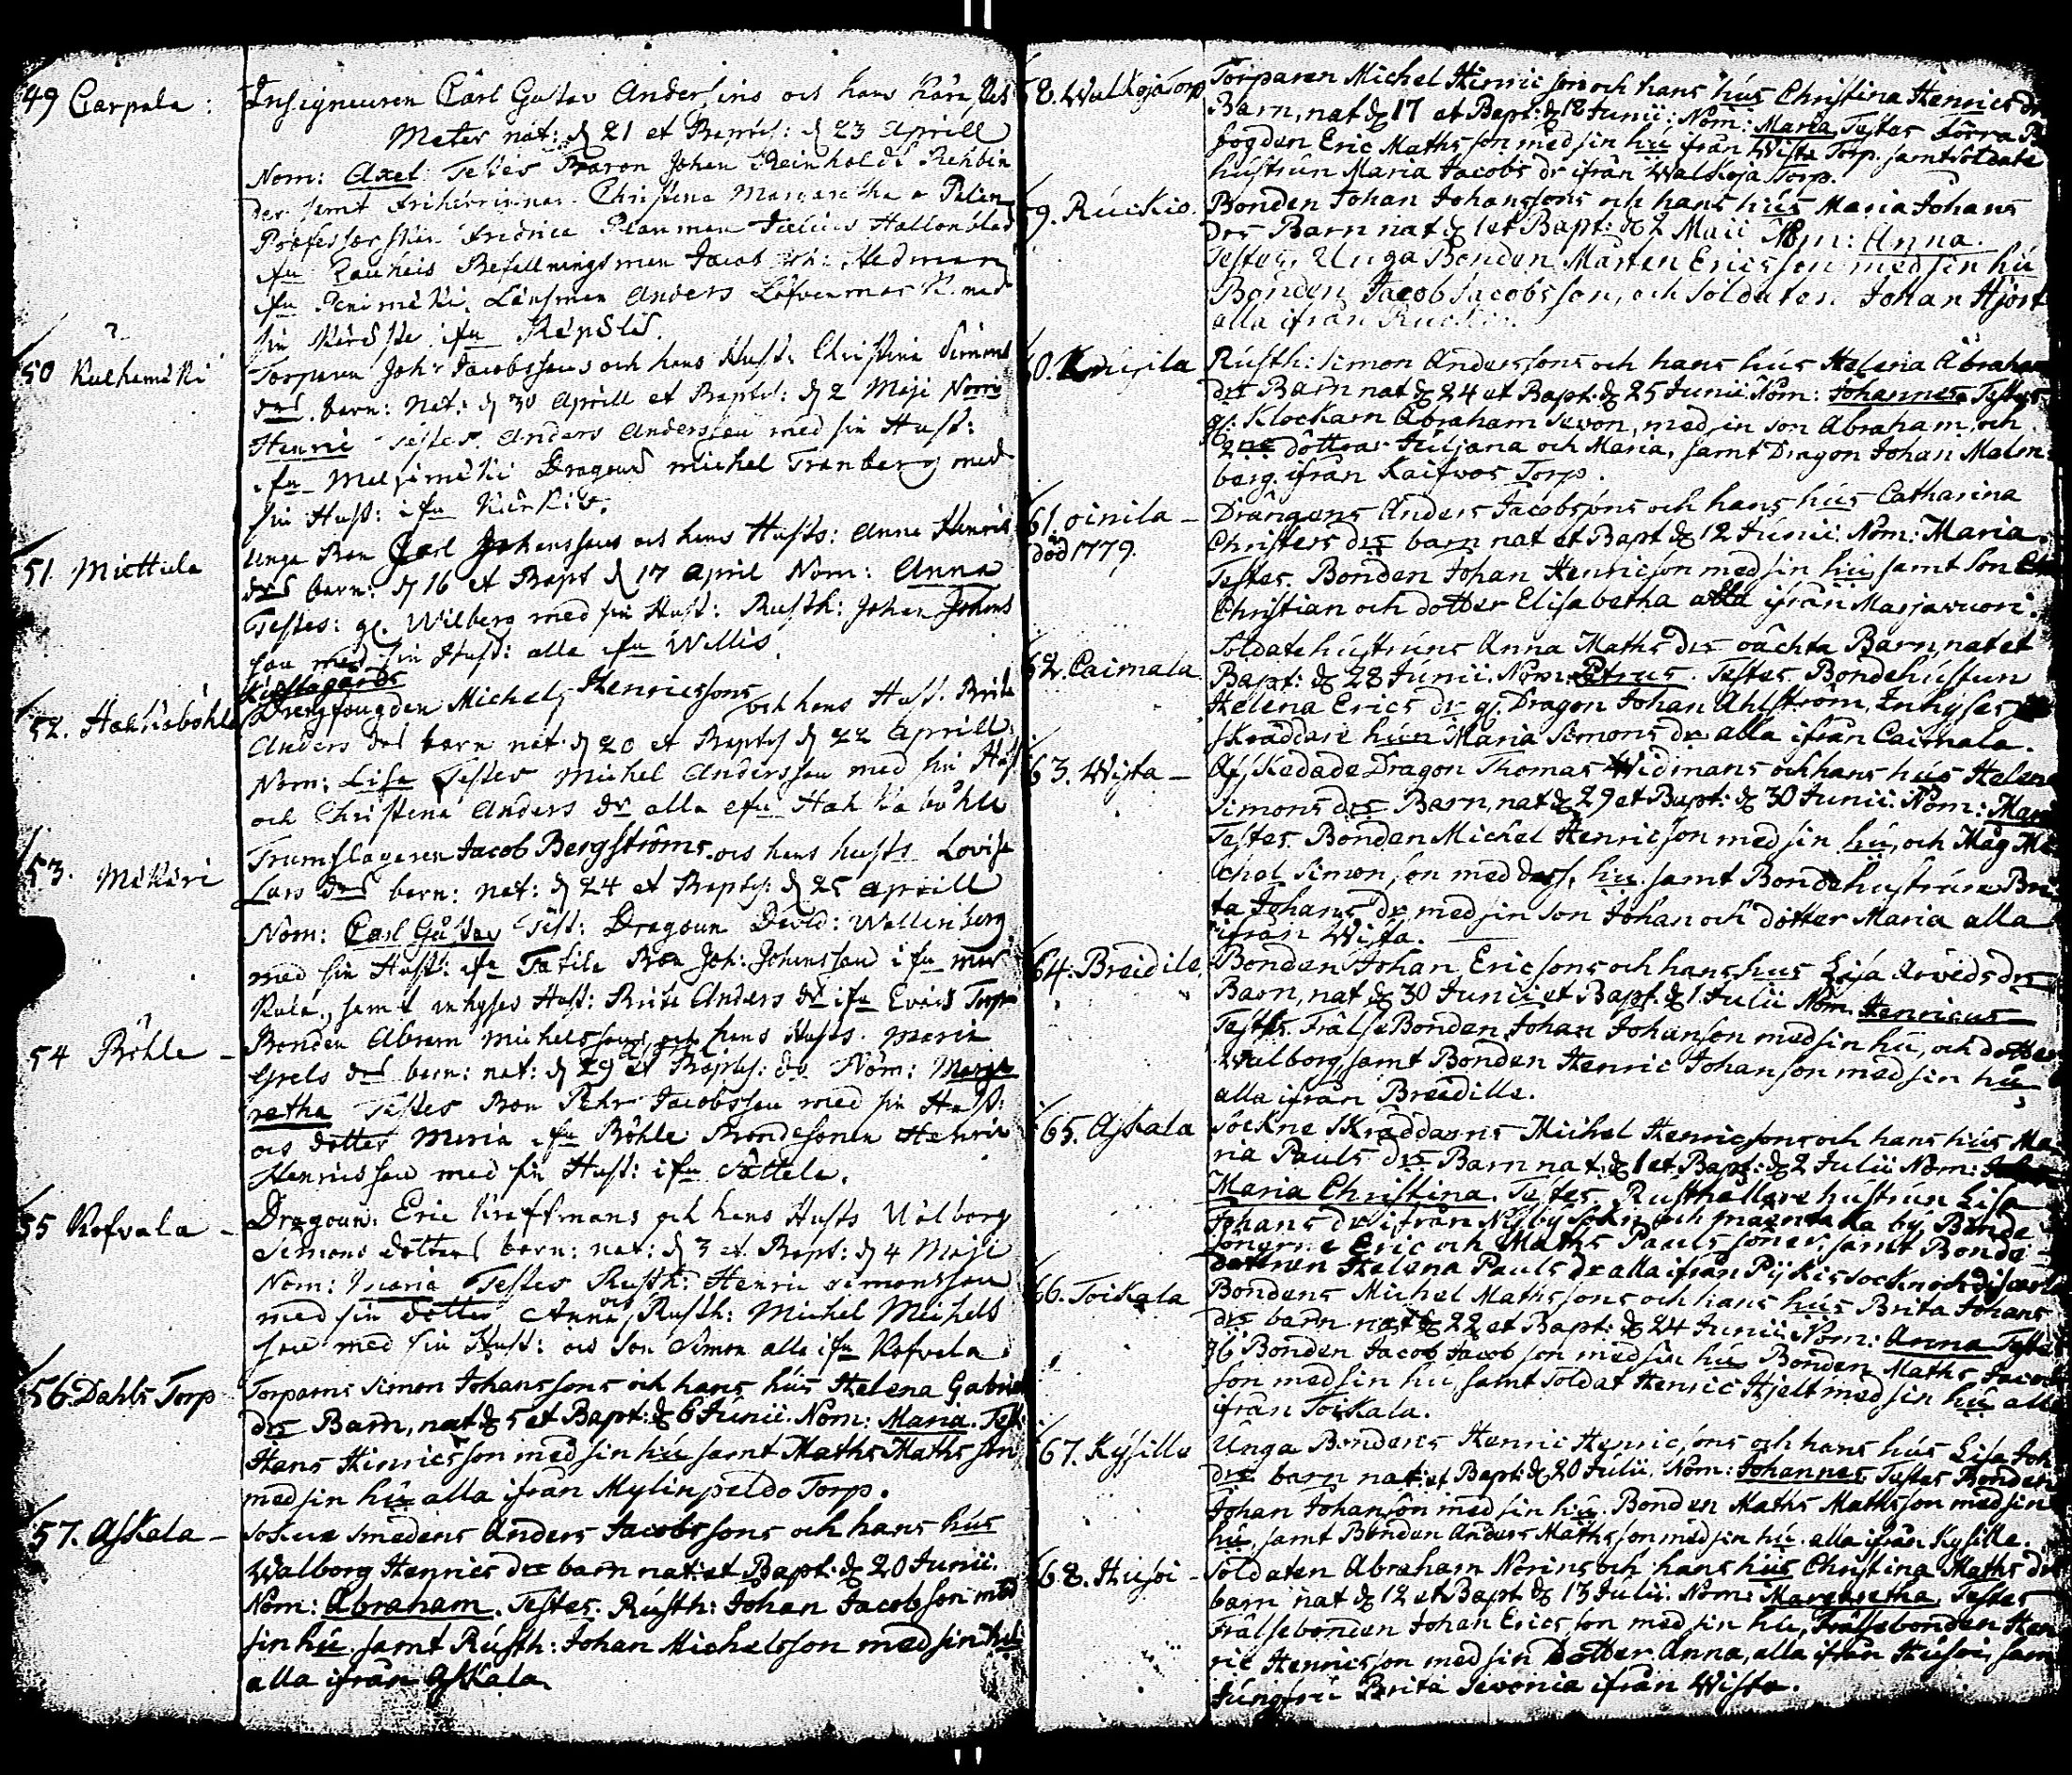 49 Carpala :
Insigneuren Carl Gustav Andersins och hans kära
nat: d 21 et Baptis: d 23 Aprill
Nom: Axel Testes Baron Johan Reinholdt Rehbin
der samt friherrinnan Christina Margaretha
Professorskan
Befallningsman Jacob Joh: Hedman
Länsman Anders
sin
50 Kulhamäki
Torparen Joh: Jacobssons och hans Hust: Christina Simons
drs barn: Nat: d 30 Aprill et Baptis: d 2 Maji Nom
Henric Testes Anders Andersson med sin Hust:
ifn Dragoun Michel Tranberg med
sin Hust: ifn Kurkis.
51. Miettula
unge Bon Carl Johanssons och hans Husts: Anna Henrics
drs barn: d 16 et Bapt d 17 April Nom: Anna
Testes: gl. Wilberg med sin Hust: Rusth: Johan Johans
son med sin Hust: alla ifn Willis.
52. Hakkisböhle
Michels Henricssons och hans Hust. Brita
Anders drs barn nat. d 20 et Baptis d 22 Aprill
Nom: Lisa Testes Michel Andersson med sin Hust
och Christina Anders dr alla ifn Hakkaböhle
53. Mäkäri
Trumslagaren Jacob Bergströms och hans husts Lovisa
Lars drs barn: nat: d 24 et Baptis: d 25 Aprill
Nom: Carl Gustav Test: Dragoun David: Wallenberg
med sin Hust: ifn Tatila Bon Joh: Johansson ifn
samt inhyses Hust: Brita Anders dr ifn Torp
54 Böhle –
Bonden Abram Michelssons, och hans Husts. Maria
Grels drs barn: nat: d 29 et Baptis: do Nom: Marga
retha Testes Bon Pehr Jacobsson med sin Hust:
och dotter Maria ifn Böhle Bondesonen Henric
Henricsson med sin Hust: ifn Sattela.
55 Rofvala –
Dragoun: Eric Kraftmans och hans Husts Walborg
Simons dotters barn: nat: d 3 et Bapt: d 4 Maji
Nom: Maria Testes Rusth: Henric Simonsson
med sin dotter Anna, och Rusth: Michel Michels
son med sin Hust: och Son Simon alla ifn Rofvala.
56. Dahls Torp
Torparns Simon Johanssons och hans hus Helena Gabriel
drs Barn, nat d 5 et Bapt: d 6 Junii. Nom: Maria. Test:
Hans Hinricsson med sin hu samt Maths Mathsson
med sin hu alla ifrån Mylinpeldo Torp.
57. Askala –
Sokne smedens Anders Jacobssons och hans hus
Walborg Henrics drs barn nat: et Bapt: d 20 Junii.
Nom: Abraham. Testes. Rusth: Johan Jacobson med
sin hu. samt Rusth: Johan Michelsson med sin hu
alla ifrån Askala
58. Walkoja Torp
Torparen Michel Hinricsson och hans hus Christina Henrics dr
Barn, nat d 17 et Bapt: d 18 Junii; Nom: Maria, Testes förra
fogden Eric Mathsson med sin hu ifrån Wista Torp. samt Soldate
hustrun Maria Jacobs dr ifrån Walkoja Torp.
59. Ruckio.
Bonden Johan Johanssons och hans hus Maria Johans
drs Barn nat d 1 et Bapt: d 2 Maii Nom: Anna.
Testes, Unga Bonden Mårten Ericsson med sin hu
Bonden Jacob Jacobsson, och Soldaten Johan Hjort
alla ifrån Ruckio.
60. Knuisila
Rusth: Simon Anderssons och hans hus Helena Abraham
drs Barn nat d 24 et Bapt: d 25 Junii. Nom: Johannes. Testes
gl. Klockarn Abraham Sevon, med sin son Abraham, och
2ne döttrar Juljana och Maria, samt Dragon Johan Malm:
berg. ifrån Kaifwos Torp.
61. Oinila –
död 1779.
Drängens Anders Jacobsons och hans hus Catharina
Christers drs barn nat et Bapt d 12 Junii. Nom: Maria.
Testes. Bonden Johan Henricson med sin hu, samt Son
Christian och dotter Elisabetha alla ifrån Marjavuori.
62. Caimala
Soldatehustruns Anna Maths drs oächta Barn, nat et
Bapt: d 28 Junii. Nom: Petrus. Testes. Bondehustrun
Helena Erics dr gl. Dragon Johan Ahlström, Inhyses
Skräddare hu Maria Simons dr alla ifrån Caimala.
63. Wista –
Afskedade Dragon Thomas Widmans och hans hus Helena
Simons drs Barn, nat d 29 et Bapt: d 30 Junii: Nom: Mari
Testes. Bonden Michel Henricson med sin hu, och Måg Mi
chel Simonson med dess hu. samt Bondehustrun Bri
ta Johans dr med sin son Johan och dotter Maria alla
ifrån Wista.
64. Breidile,
Bonden Johan Ericsons och hans hus Lisa Arvids drs
Barn, nat d 30 Junii et Bapt. d 1 Julii Nom. Henricus
Testes. Frälse Bonden Johan Johanson med sin hu, och dotter
Walborg, samt Bonden Henric Johanson med sin hu,
alla ifrån Breidille.
65. Askala
Sockne Skräddarns Michel Henricsons och hans hus Ma
ria Pauls drs Barn nat: d 1 et Bapt: d 2 Julii Nom:
Maria Christina. Testes. Rusthållare hustrun Lisa
Johans dr ifrån Nijby sokn och by. Bonde
sönerne Eric och Maths Pauls söner, samt Bonde
dottren Helena Pauls dr alla ifrån Pijkis sockn och
66. Toikala
Bondens Michel Mathssons och hans hus Brita Johans
drs barn nat d 22 et Bapt: d 24 Junii. Nom: Anna Testes
Bonden Jacob Jacobson med sin hu Bonden Maths Jacob
son med sin hu samt Soldat Henric Hjelt med sin hu alla
ifrån Toikala.
67. Kysille
Unga Bondens Henric Henricsons och hans hus Lisa Joh
drs barn nat: et Bapt: d 20 Julii, Nom: Johannes, Testes Bonden
Johan Johanson med sin hu. Bonden Maths Mathsson med sin
hu, samt Bonden Anders Mathsson med sin hu. alla ifrån Kysille.
68. Husoi –
Soldaten Abraham Norins och hans hus Christina Maths drs
barn nat d 12 et Bapt d 13 Julii. Nom: Margaretha. Testes
Frälsebonden Johan Ericsson med sin hu, Frälsebonden Hen
ric Henricsson med sin Dotter Anna, alla ifrån Husoi, sam
Jungfru Brita Sevonia ifrån Wista.